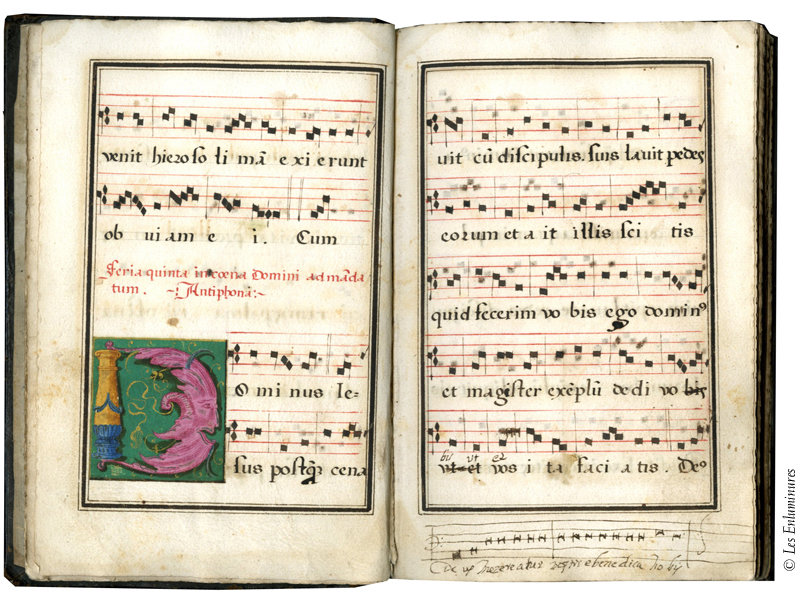 venit hieroso li mā e xi e runt
ob vi am e i. Cum
Feria quinta in coena Domini ad māda
tum. Antiphona:
D O mi nus Ie=
sus postq̄ cena
vit cū disci pulis. suis lavit pedes
eorum et a it illis sci tis
quid fecerim vo bis ego domin⁹
et magister exēplū de di vo bis
bis vt et
vt et vos i ta faci a tis. De⁹
© Les Enluminures